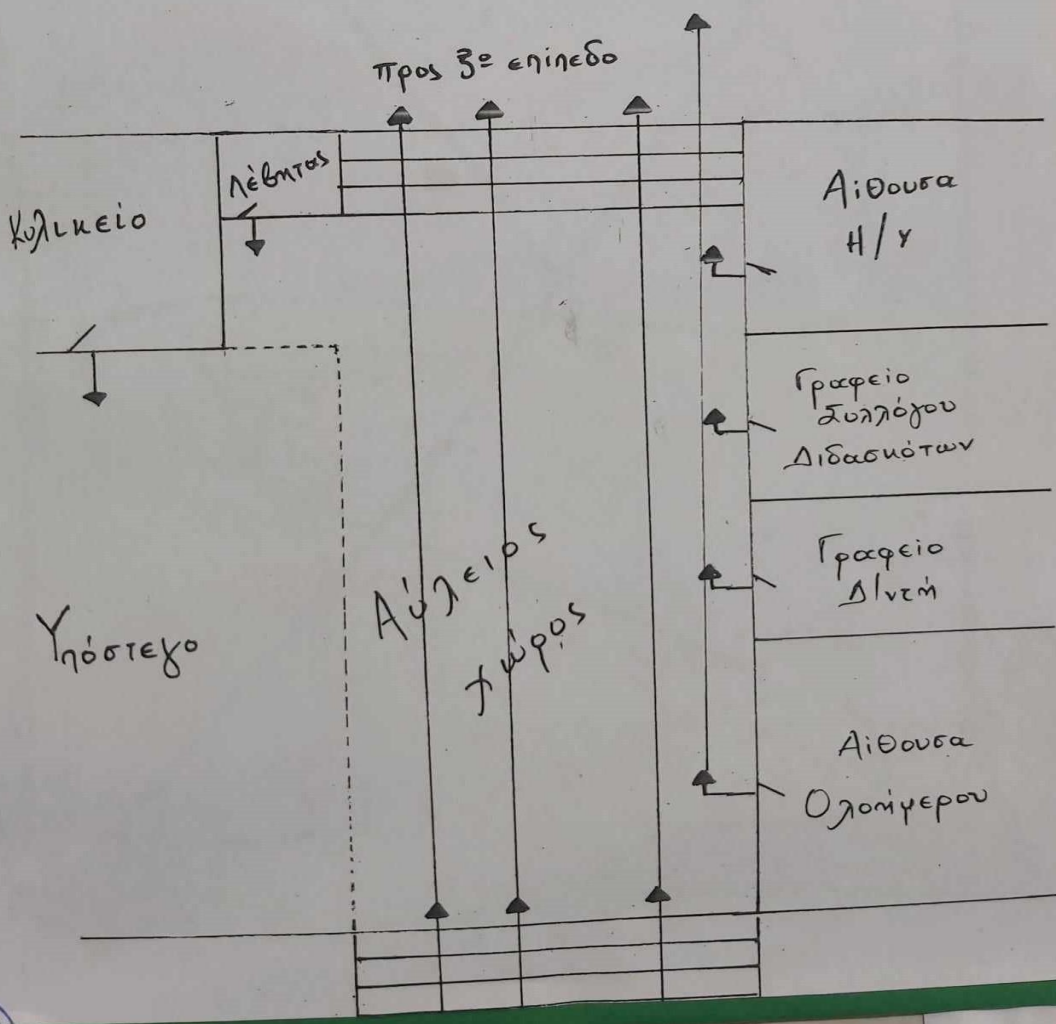 προς 3º επίπεδο
Κυλικείο
Λέβητας
Αίθουσα
Η/Υ
Γραφείο
Συλλόγου
Διδασκότων
Γραφείο
Δ/ντή
Υπόστεγο
Αύλειος
χώρος
Αίθουσα
Ολοήμερου